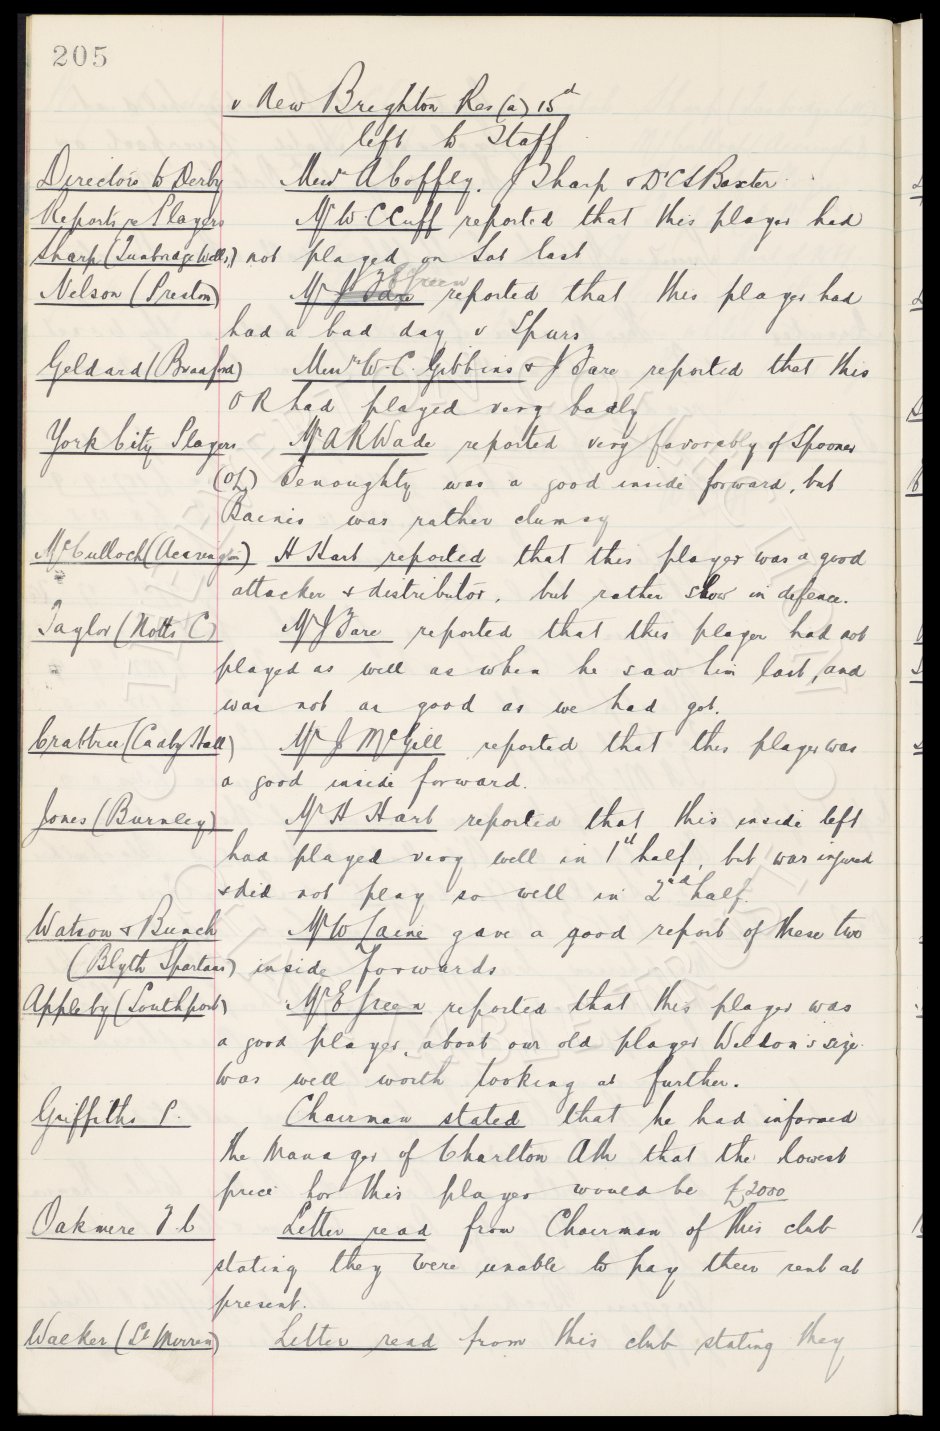 205
v New Brighton Res (a) 15th
left to Staff
Directors to Derby Messrs A Coffey. J Sharp & Dr C S Baxter.
Reports re Players Mr W C Cuff reported that this player had
Sharp (Tunbridge Wells) not played on Sat last
Nelson (Preston) Mr E Green reported that this player had
had a bad day v Spurs
Geldard (Bradford) Messrs W. C. Gibbins & J Fare reported that this
O R had played very badly
York City Players Mr A R Wade reported very favorably of Spooner
(OL) Fenoughty was a good inside forward, but
Baines was rather clumsy
McCulloch (Accrington) H Hart reported that this player was a good
attacker & distributor, but rather slow in defence.
Taylor (Notts C) Mr J Fare reported that this player had not
played as well as when he saw him last, and
was not as good as we had got.
Crabtree (Cadby Hall) Mr J McGill reported that this player was
a good inside forward.
Jones (Burnley) Mr H Hart reported that this inside left
had played very well in 1st half, but was injured
& did not play so well in 2nd half.
Watson & Bunch Mr W Laine gave a good report of these two
(Blyth Spartans) inside forwards
Appleby (Southport) Mr E Green reported that this player was
a good player, about our old player Weldon's size.
Was well worth looking at further.
Griffiths P. Chairman stated that he had informed
the Manager of Charlton Ath that the lowest
price for this player would be £2000
Oakmere F.C Letter read from Chairman of this club
stating they were unable to pay their rent at
present.
Walker (St Mirren) Letter read from this club stating they